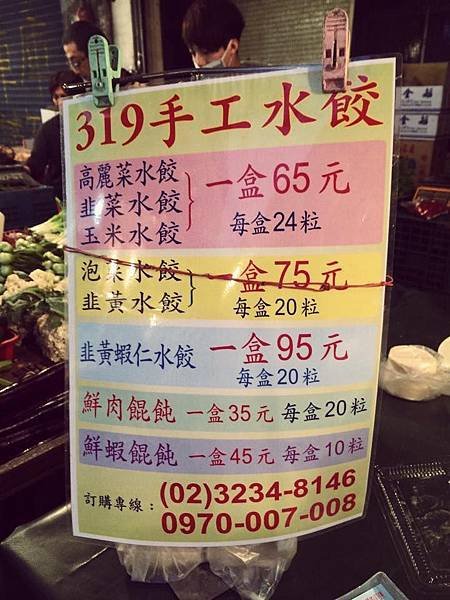 319手工水餃
高麗菜水餃
韭菜水餃
玉米水餃
一盒65元
每盒24粒
泡菜水餃
韭黃水餃
一盒75元
每盒20粒
韭黃蝦仁水餃 一盒95元
每盒20粒
鮮肉餛飩 一盒35元 每盒20粒
鮮蝦餛飩 一盒45元 每盒10粒
訂購專線：
(02)3234-8146
0970-007-008